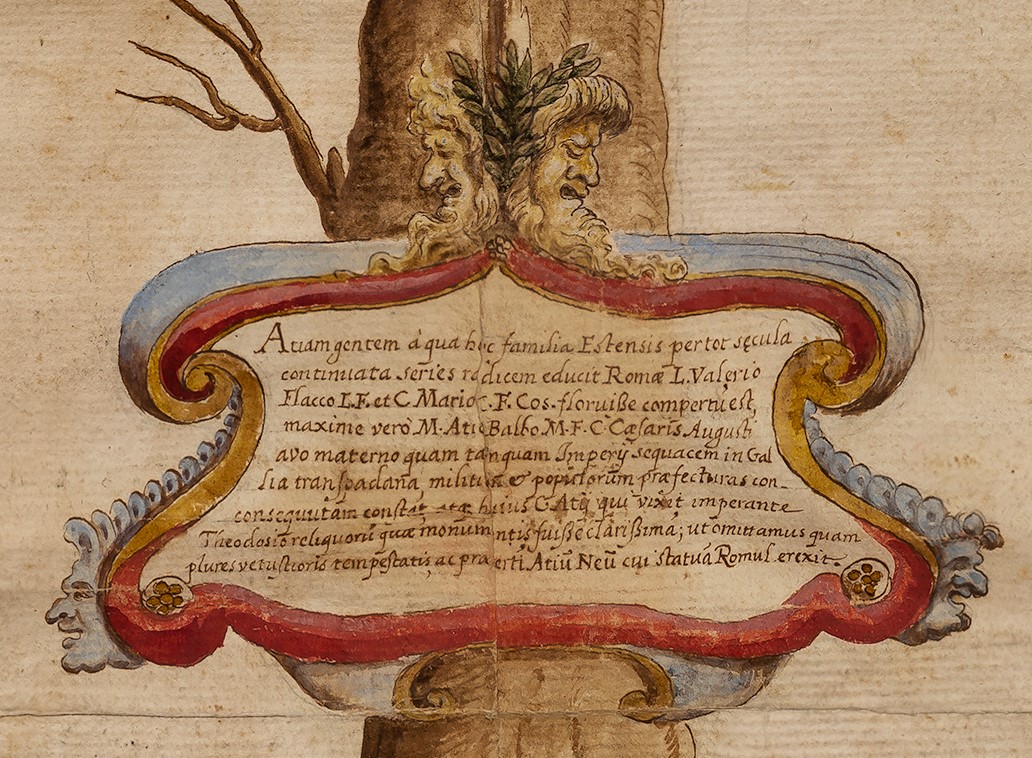 Atiam gentem à qua hęc familia Estensis per tot sęcula
continuata series radicem educit Romæ L. Valerio
Flacco L.F. et C. Mario C.F. Cos. floruiße compertũ est,
maxime verò M. Atio Balbo M.F. C. Cæsaris Augusti
avo materno quam tanquam Imperÿ sequacem in Gal
lia transpadana, militum & populorum præfecturas con
consequutam constat
Theodosio reliquorũ quæ monumentis fuiße clarißima; ut omittamus quam
plures vetustioris tempestatis, ac præserti Atiũ Neũ cui statuã Romul. erexit.